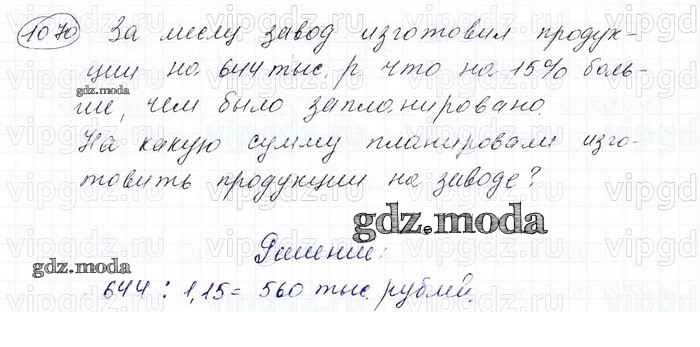 1070 За месяц завод изготовил продук-
ции на 644 тыс. р. что на 15% боль-
gdz.moda
ше, чем было запланировано.
На какую сумму планировали изго-
товить продукции на заводе?
gdz.moda
Решение:
gdz.moda
644 : 1,15 = 560 тыс. рублей.